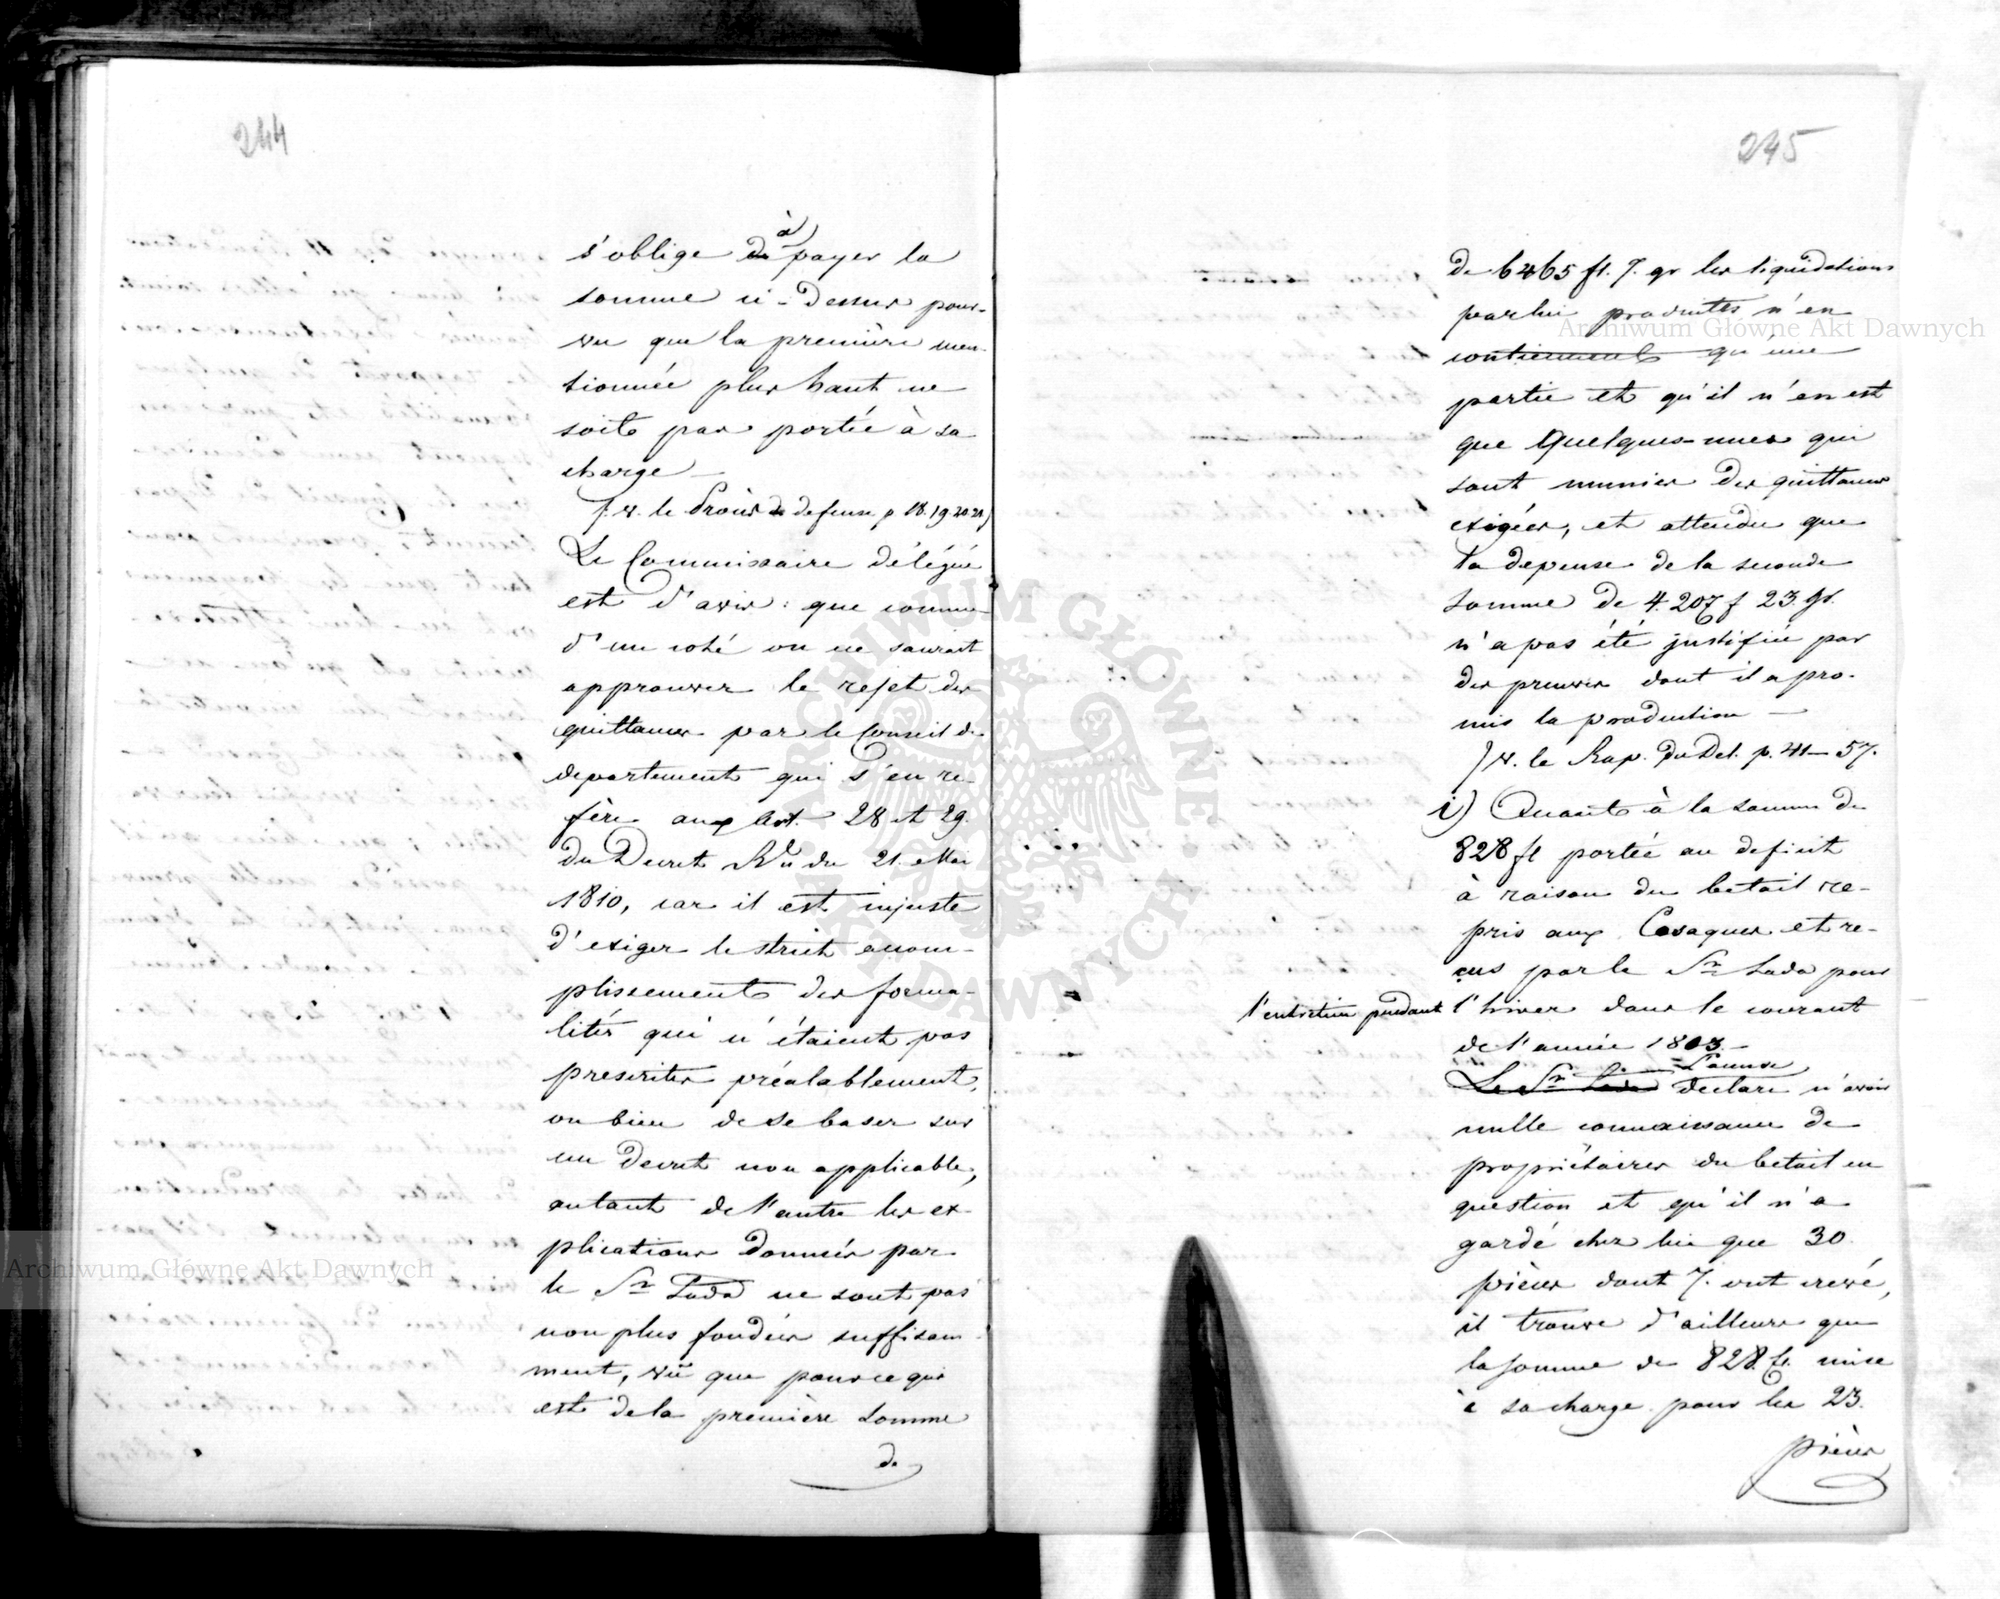 244
s'oblige de à payer la
somme ci-dessus pour-
vu que la première men-
tionnée plus haut ne
soit pas portée à sa
charge
(v. le Procès de defense p 18. 19 20 21)
Le Commissaire délégué
est d'avis: que comme
d'un coté on ne saurait
approuver le rejet des
quittances par le Conseil de
departement qui s'en re-
fère aux Art. 28 et 29.
du Decret du 21. Mai
1810, car il est injuste
d'exiger le strict accom-
plissement des forma-
lités qui n'étaient pas
prescrites préalablement,
ou bien de se baser sur
un decret non applicable,
autant de l'autre les ex-
plications données par
le Sr Lada ne sont pas
non plus fondées suffisam-
ment, vu que pour ce qui
est de la première somme
de
245
de 6465 fl. 7. gr les liquidations
par lui produites n'en
contiennent qu'une
partie et qu'il n'en est
que quelques-unes qui
sont munies des quittances
exigées, et attendu que
la depense de la seconde
somme de 4.207 f 23. gr.
n'a pas été justifiée par
des preuves dont il a pro-
mis la production —
(v. le Rap. du Del. p. 41 — 57.
i) Quant à la somme de
828 fl portée au deficit
à raison du betail re-
pris aux Cosaques et re-
çus par le Sr Lada pour
l'entretien pendant l'hiver dans le courant
de l'année 1803. —
L'accusé
Le Sr Lada declare n'avoir
nulle connaissance de
propriétaires du betail en
question et qu'il n'a
gardé chez lui que 30.
pièces dont 7. ont crevé,
il trouve d'ailleurs que
la somme de 828. fl. mise
à sa charge pour les 23.
pièces
Archiwum Główne Akt Dawnych
Archiwum Główne Akt Dawnych
ARCHIWUM GŁÓWNE AKT DAWNYCH